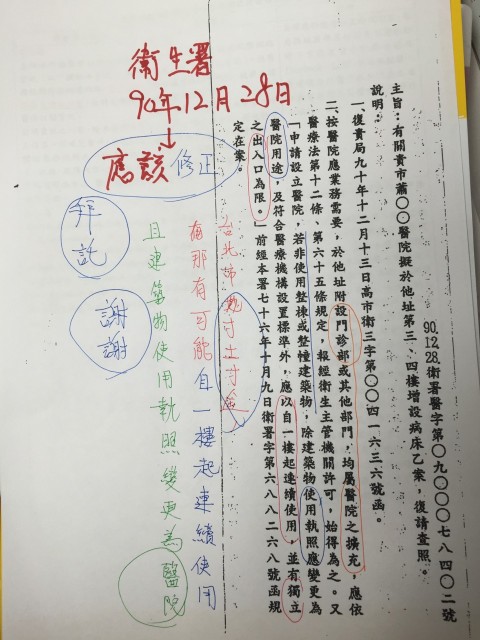 90.12.28.衛署醫字第○九○○○七八四○二號
主旨：有關貴市蕭○○醫院擬於他址第三、四樓增設病床乙案，復請查照。
說明：
一、復貴局九十年十二月十三日高市衛三字第○○四一六三六號函。
二、按醫院應業務需要，於他址附設門診部或其他部門，均屬醫院之擴充，應依
醫療法第十二條、第六十五條規定，報經衛生主管機關許可，始得為之。又
「申請設立醫院，若非使用整棟或整幢建築物，除建築物使用執照應變更為
醫院用途，及符合醫療機構設置標準外，應以自一樓起連續使用，並有獨立
之出入口為限。」前經本署七十六年十月九日衛署字第六八八二六八號函規
定在案。
衛生署
90年12月28日
應該修正
台北市寸土寸金
在那有可能自一樓起連續使用
且連築物使用執照變更為醫院
謝謝
拜託